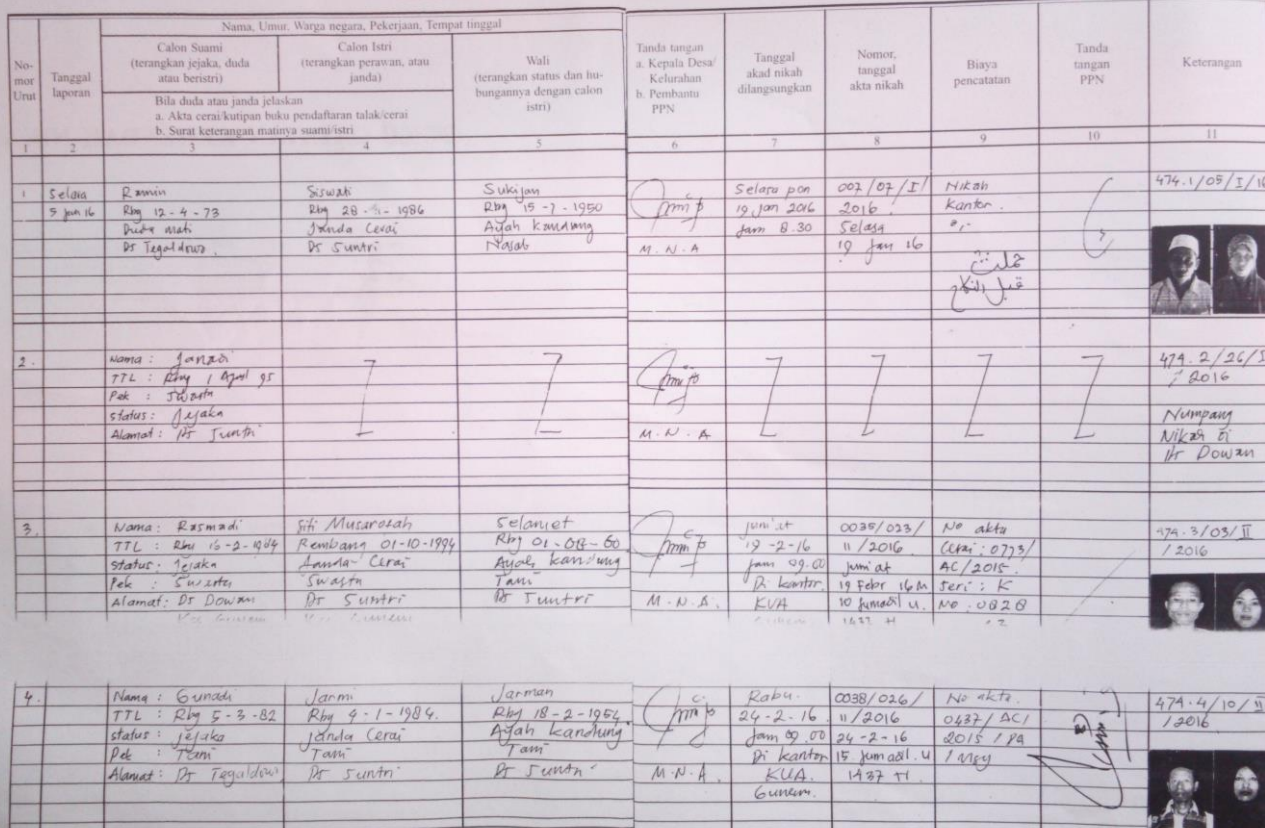 Nama, Umur. Warga negara, Pekerjaan, Tempat tinggal
No-
mor
Urut
Tanggal
laporan
Calon Suami
(terangkan jejaka, duda
atau beristri)
Calon Istri
(terangkan perawan, atau
janda)
Wali
(terangkan status dan hu-
bungannya dengan calon
istri)
Bila duda atau janda jelaskan
a. Akta cerai/kutipan buku pendaftaran talak/cerai
b. Surat keterangan matinya suami/istri
Tanda tangan
a. Kepala Desa/
Kelurahan
b. Pembantu
PPN
Tanggal
akad nikah
dilangsungkan
Nomor,
tanggal
akta nikah
Biaya
pencatatan
Tanda
tangan
PPN
Keterangan
1 2 3 4 5 6 7 8 9 10 11
1
Selasa
5 Jan 16
Ramin
Rbg 12-4-73
Duda mati
Ds Tegaldowo.
Siswati
Rbg 28 - 1986
Janda Cerai
Ds Suntri
Sukijan
Rbg 15-7-1950
Ayah kandung
Nasab
M.N.A
Selasa pon
19 Jan 2016
Jam 8.30
007/07/I/
2016.
Selasa
19 Jan 16
Nikah
Kantor.
قبل النكاح
474.1/05/I/16
2.
Nama :
TTL : Rbg 1 April 95
Pek : Swasta
Status : Jejaka
Alamat : Ds Suntri
M.N.A
474.2/26/I
/ 2016
Numpang
Nikah Di
Ds Dowan
3.
Nama : Rasmadi
TTL : Rbg 16-2-1984
Status : Jejaka
Pek : Swasta
Alamat : Ds Dowan
Siti Musarosah
Rembang 01-10-1994
Janda Cerai
Swasta
Ds Suntri
Selamet
Rbg 01-08-60
Ayah kandung
Tani
Ds Suntri
M.N.A.
Jum'at
19-2-16
Jam 09.00
Di kantor
KUA
0035/023/
11/2016.
Jum'at
19 Febr 16 M
10 Jumadil U.
1437 H
No akta
Cerai : 0773/
AC/2015.
Seri : K
No : 0828
474.3/03/II
/ 2016
4.
Nama : Gunadi
TTL : Rbg 5-3-82
Status : Jejaka
Pek : Tani
Alamat : Ds Tegaldowo
Jarmi
Rbg 4-1-1984.
Janda Cerai
Tani
Ds Suntri
Jarman
Rbg 18-2-1954
Ayah kandung
Tani
Ds Suntri
M.N.A
Rabu.
24-2-16
Jam 09.00
Di kantor
KUA.
Gunem.
0038/026/
11/2016
24-2-16
15 Jumadil. U
1437 H.
No akta.
0437/AC/
2015/PA
474.4/10/II
/ 2016